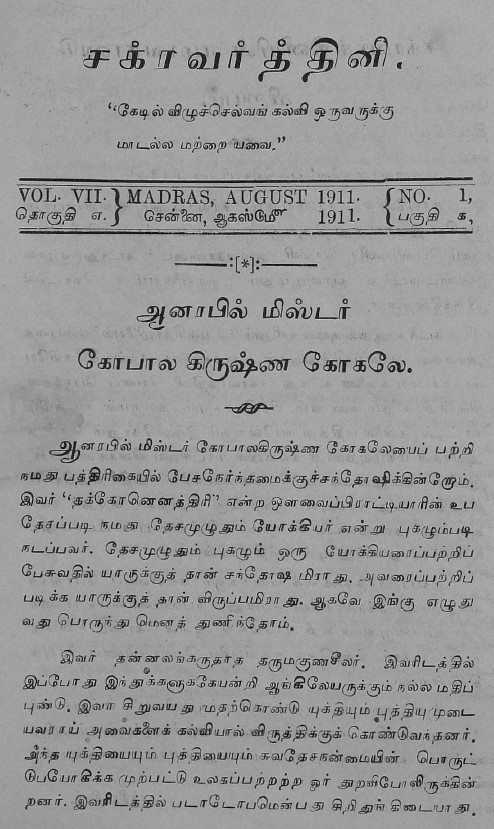 சக்ரவர்த்தினி.
“கேடில் விழுச்செல்வங் கல்வி ஒருவருக்கு
மாடல்ல மற்றை யவை.”
VOL. VII. } MADRAS, AUGUST 1911. { NO. 1,
தொகுதி எ. } சென்னை, ஆகஸ்டுமீ 1911. { பகுதி க,
:[*]:
ஆனரபில் மிஸ்டர்
கோபால கிருஷ்ண கோகலே.
ஆனரபில் மிஸ்டர் கோபாலகிருஷ்ண கோகலேயைப் பற்றி
நமது பத்திரிகையில் பேசநேர்ந்தமைக்குச்சந்தோஷிக்கின்றோம்.
இவர் “தக்கோனெனத்திரி” என்ற ஔவைப்பிராட்டியாரின் உப
தேசப்படி நமது தேசமுழுதும் யோக்கியர் என்று புகழும்படி
நடப்பவர். தேசமுழுதும் புகழும் ஒரு யோக்கியரைப்பற்றிப்
பேசுவதில் யாருக்குத் தான் சந்தோஷ மிராது. அவரைப்பற்றிப்
படிக்க யாருக்குத் தான் விருப்பமிராது. ஆகவே இங்கு எழுது
வது பொருந்து மெனத் துணிந்தோம்.
இவர் தன்னலங்கருதாத தருமகுணசீலர். இவரிடத்தில்
இப்போது இந்துக்களுக்கேயன்றி ஆங்கிலேயருக்கும் நல்ல மதிப்
புண்டு. இவர் சிறுவயது முதற்கொண்டு யுக்தியும் புத்தியுமுடை
யவராய் அவைகளைக் கல்வியால் விருத்திக்குக் கொண்டுவந்தனர்.
அந்த யுக்தியையும் புத்தியையும் சுவதேசநன்மையின் பொருட்
டுபயோகிக்க முற்பட்டு உலகப்பற்றற்ற ஓர் துறவிபோலிருக்கின்
றனர். இவரிடத்தில் படாடோபமென்பது சிறிதுங் கிடையாது.